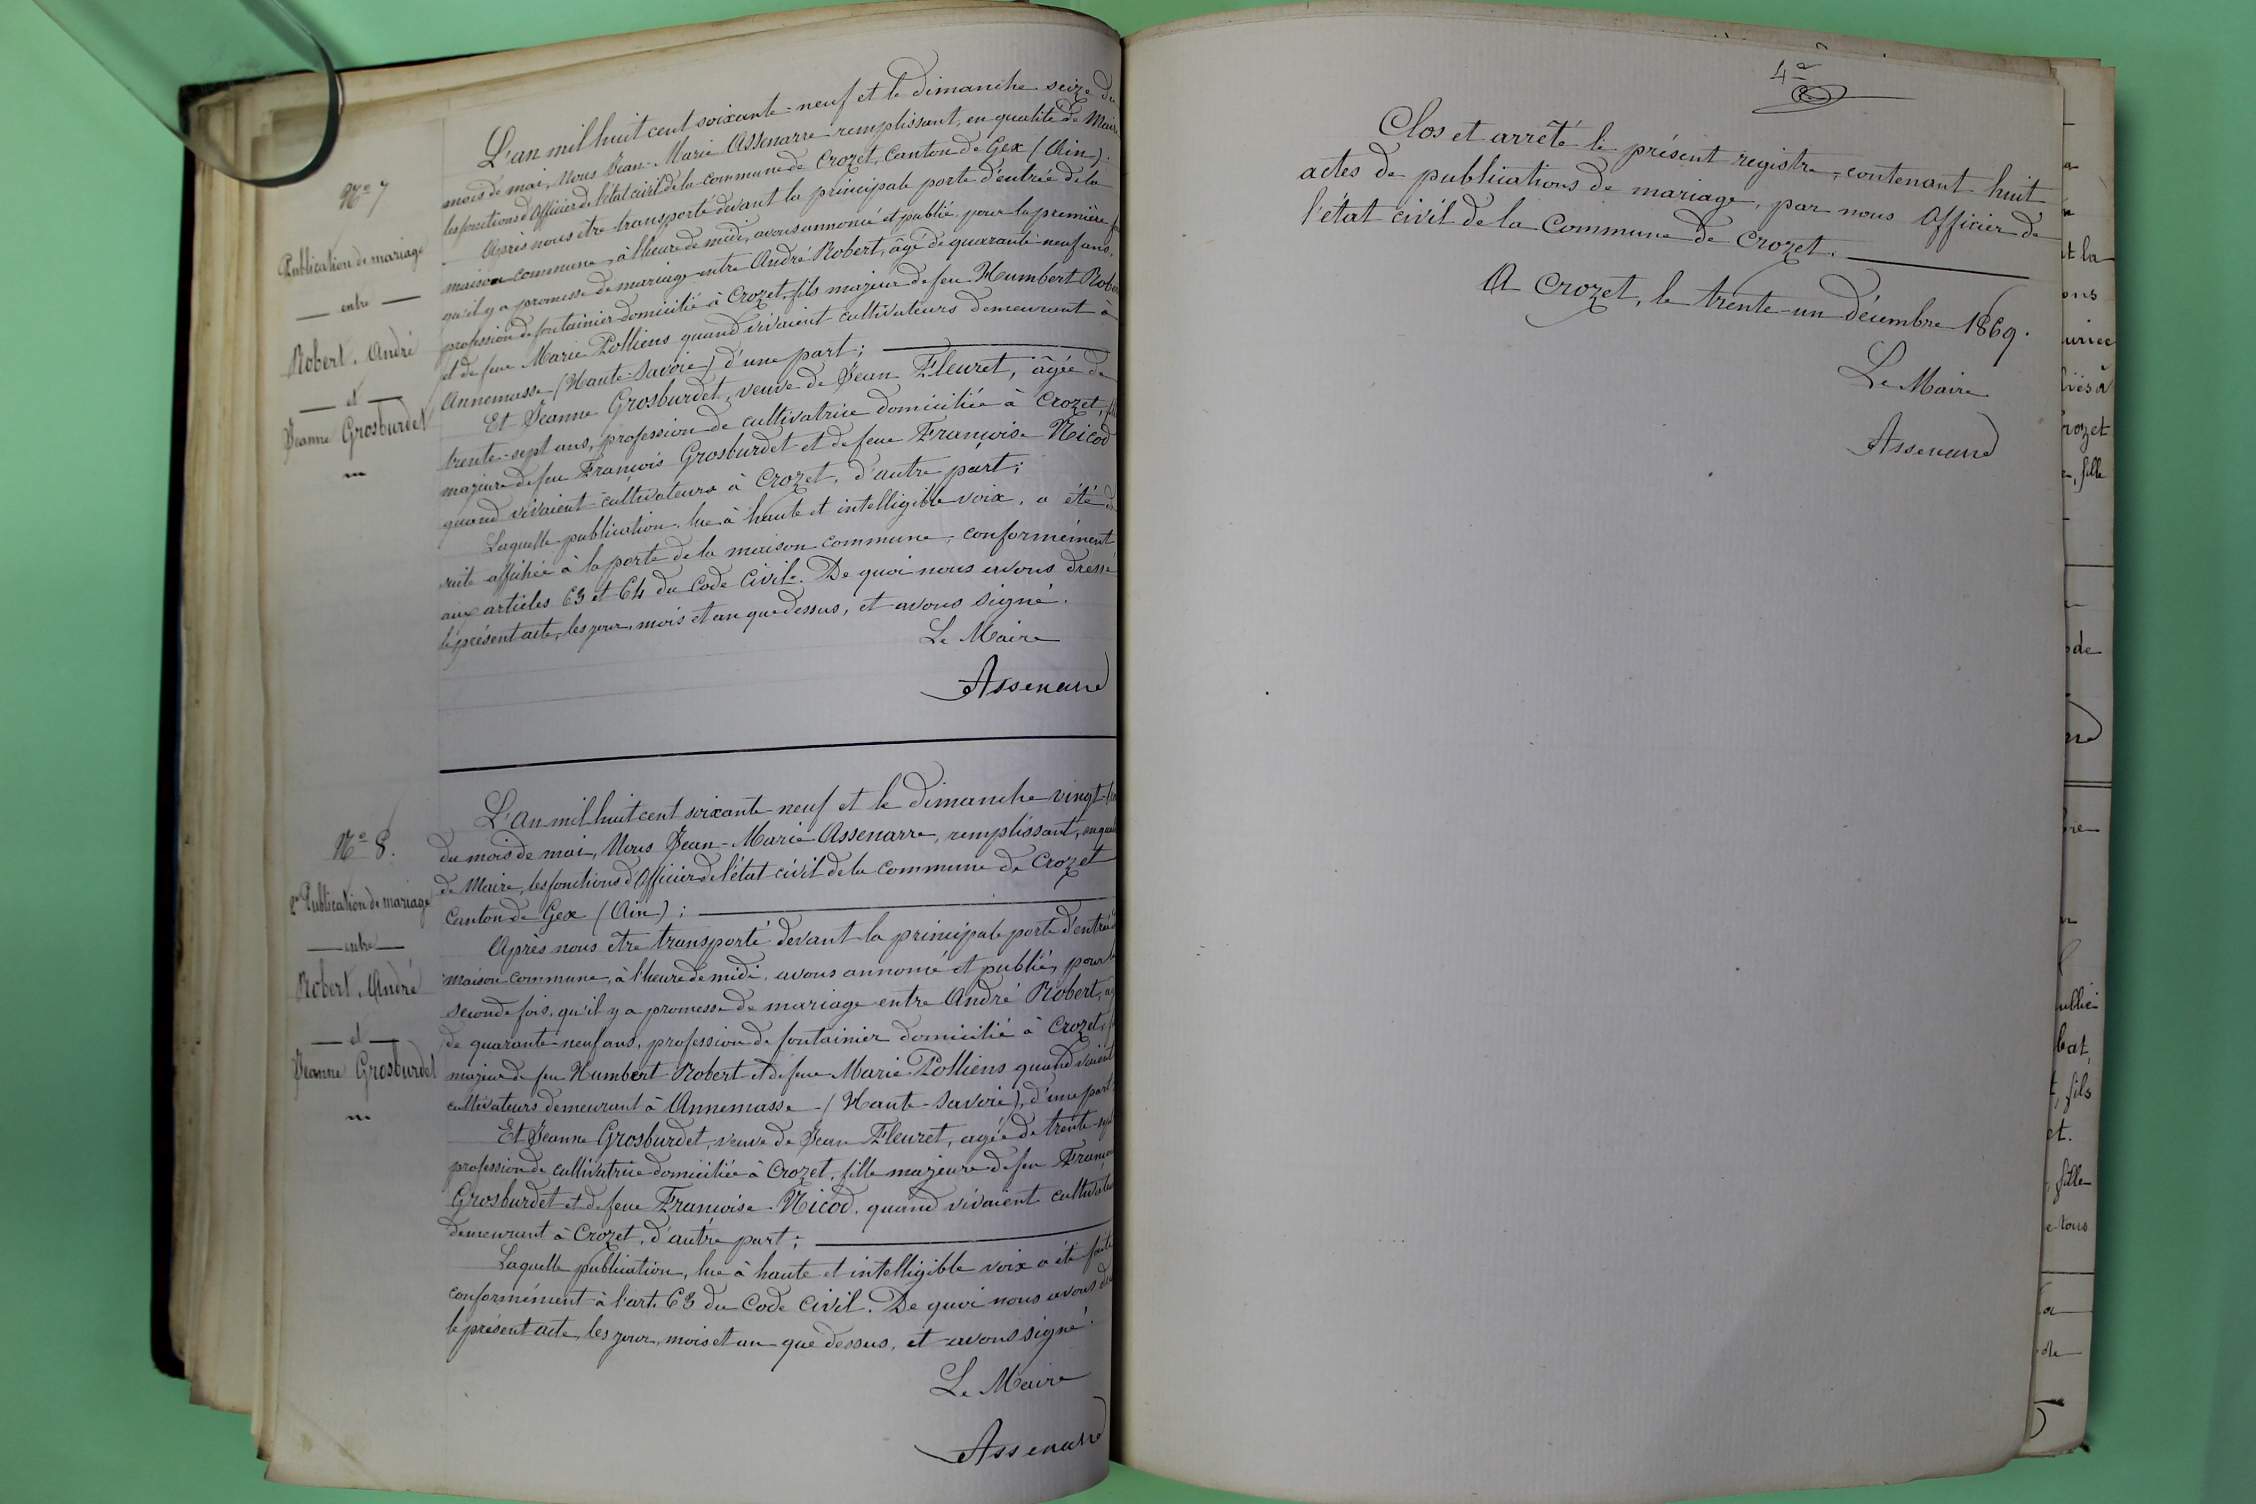 N° 7
Publication de mariage
entre
Robert, André
et
Jeanne Grosburdet
L'an mil huit cent soixante-neuf et le dimanche seize du
mois de mai, Nous Jean-Marie Assenarre remplissant, en qualité de Maire
les fonctions d'Officier de l'état civil de la commune de Crozet, Canton de Gex (Ain).
Après nous être transporté devant la principale porte d'entrée de la
maison commune, à l'heure de midi, avons annoncé et publié, pour la première
qu'il y a promesse de mariage entre André Robert, âgé de quarante-neuf ans,
profession de fontainier domicilié à Crozet, fils majeur de feu Humbert Robe
et de feue Marie Polliens quand vivaient cultivateurs demeurant à
Annemasse (Haute-Savoie) d'une part;
Et Jeanne Grosburdet, veuve de Jean Fleuret, âgée de
trente-sept ans, profession de cultivatrice domiciliée à Crozet,
majeure de feu François Grosburdet et de feue Françoise Nicod
quand vivaient cultivateurs à Crozet, d'autre part;
Laquelle publication, lue à haute et intelligible voix, a été
suite affichée à la porte de la maison commune, conformément
aux articles 63 et 64 du Code Civil. De quoi nous avons dressé
le présent acte, les jour, mois et an que dessus, et avons signé.
Le Maire
Assenarre
N° 8.
2e Publication de mariage
entre
Robert, André
et
Jeanne Grosburdet
L'an mil huit cent soixante neuf et le dimanche vingt-
du mois de mai, Nous Jean-Marie Assenarre, remplissant, en qual
de Maire, les fonctions d'Officier de l'état civil de la commune de Crozet
Canton de Gex (Ain);
Après nous être transporté devant la principale porte d'entrée
maison commune, à l'heure de midi, avons annoncé et publié, pour
seconde fois, qu'il y a promesse de mariage entre André Robert,
de quarante-neuf ans, profession de fontainier domicilié à Crozet,
majeur de feu Humbert Robert et de feue Marie Polliens quand vivaient
cultivateurs demeurant à Annemasse (Haute-Savoie), d'une part
Et Jeanne Grosburdet, veuve de Jean Fleuret, agée de trente-sept
profession de cultivatrice domiciliée à Crozet, fille majeure de feu Franço
Grosburdet et de feue Françoise Nicod, quand vivaient cultivateu
demeurant à Crozet, d'autre part;
Laquelle publication, lue à haute et intelligible voix a été faite
conformément à l'art. 63 du Code Civil. De quoi nous avons
le présent acte, les jour, mois et an que dessus, et avons signé.
Le Maire
Assenarre
4e
Clos et arrêté le présent registre, contenant huit
actes de publications de mariage, par nous Officier de
l'état civil de la Commune de Crozet.
A Crozet, le trente-un décembre 1869.
Le Maire
Assenarre